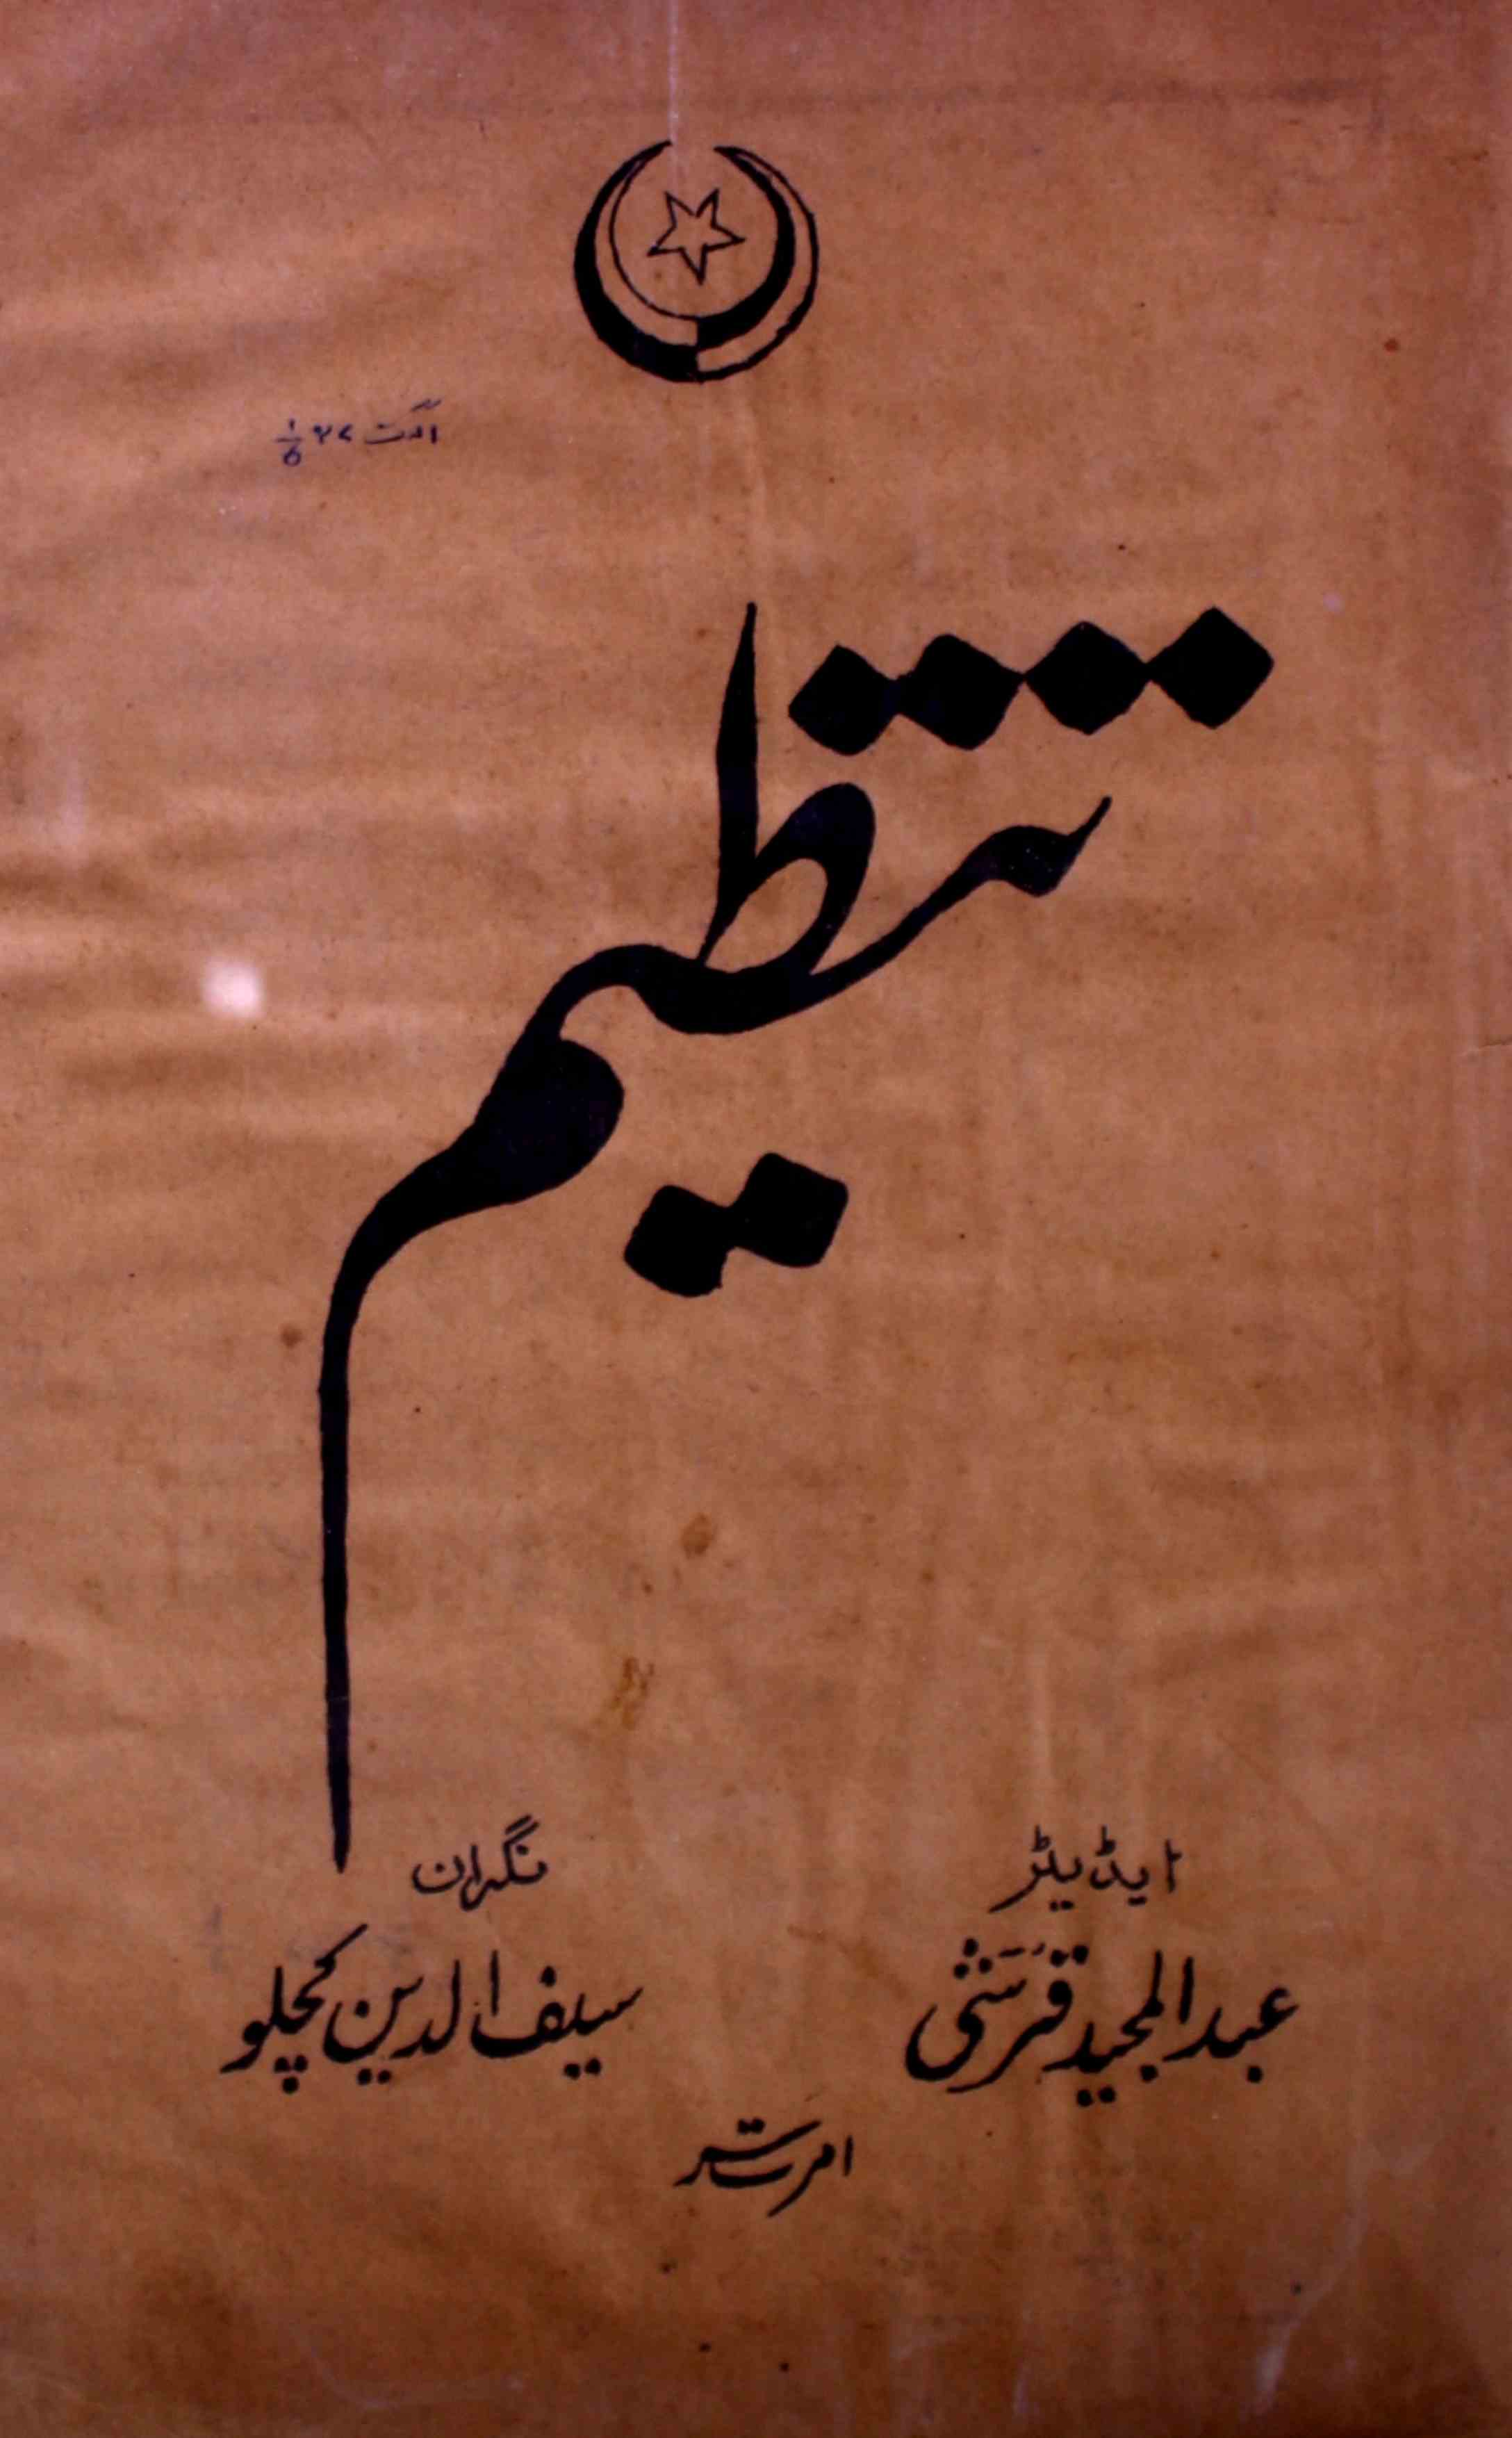 اگست ۲۷ ۱/۵
تنظیم
ایڈیٹر
عبدالمجید قرشی
نگران
سیف الدین کچلو
امرتسر